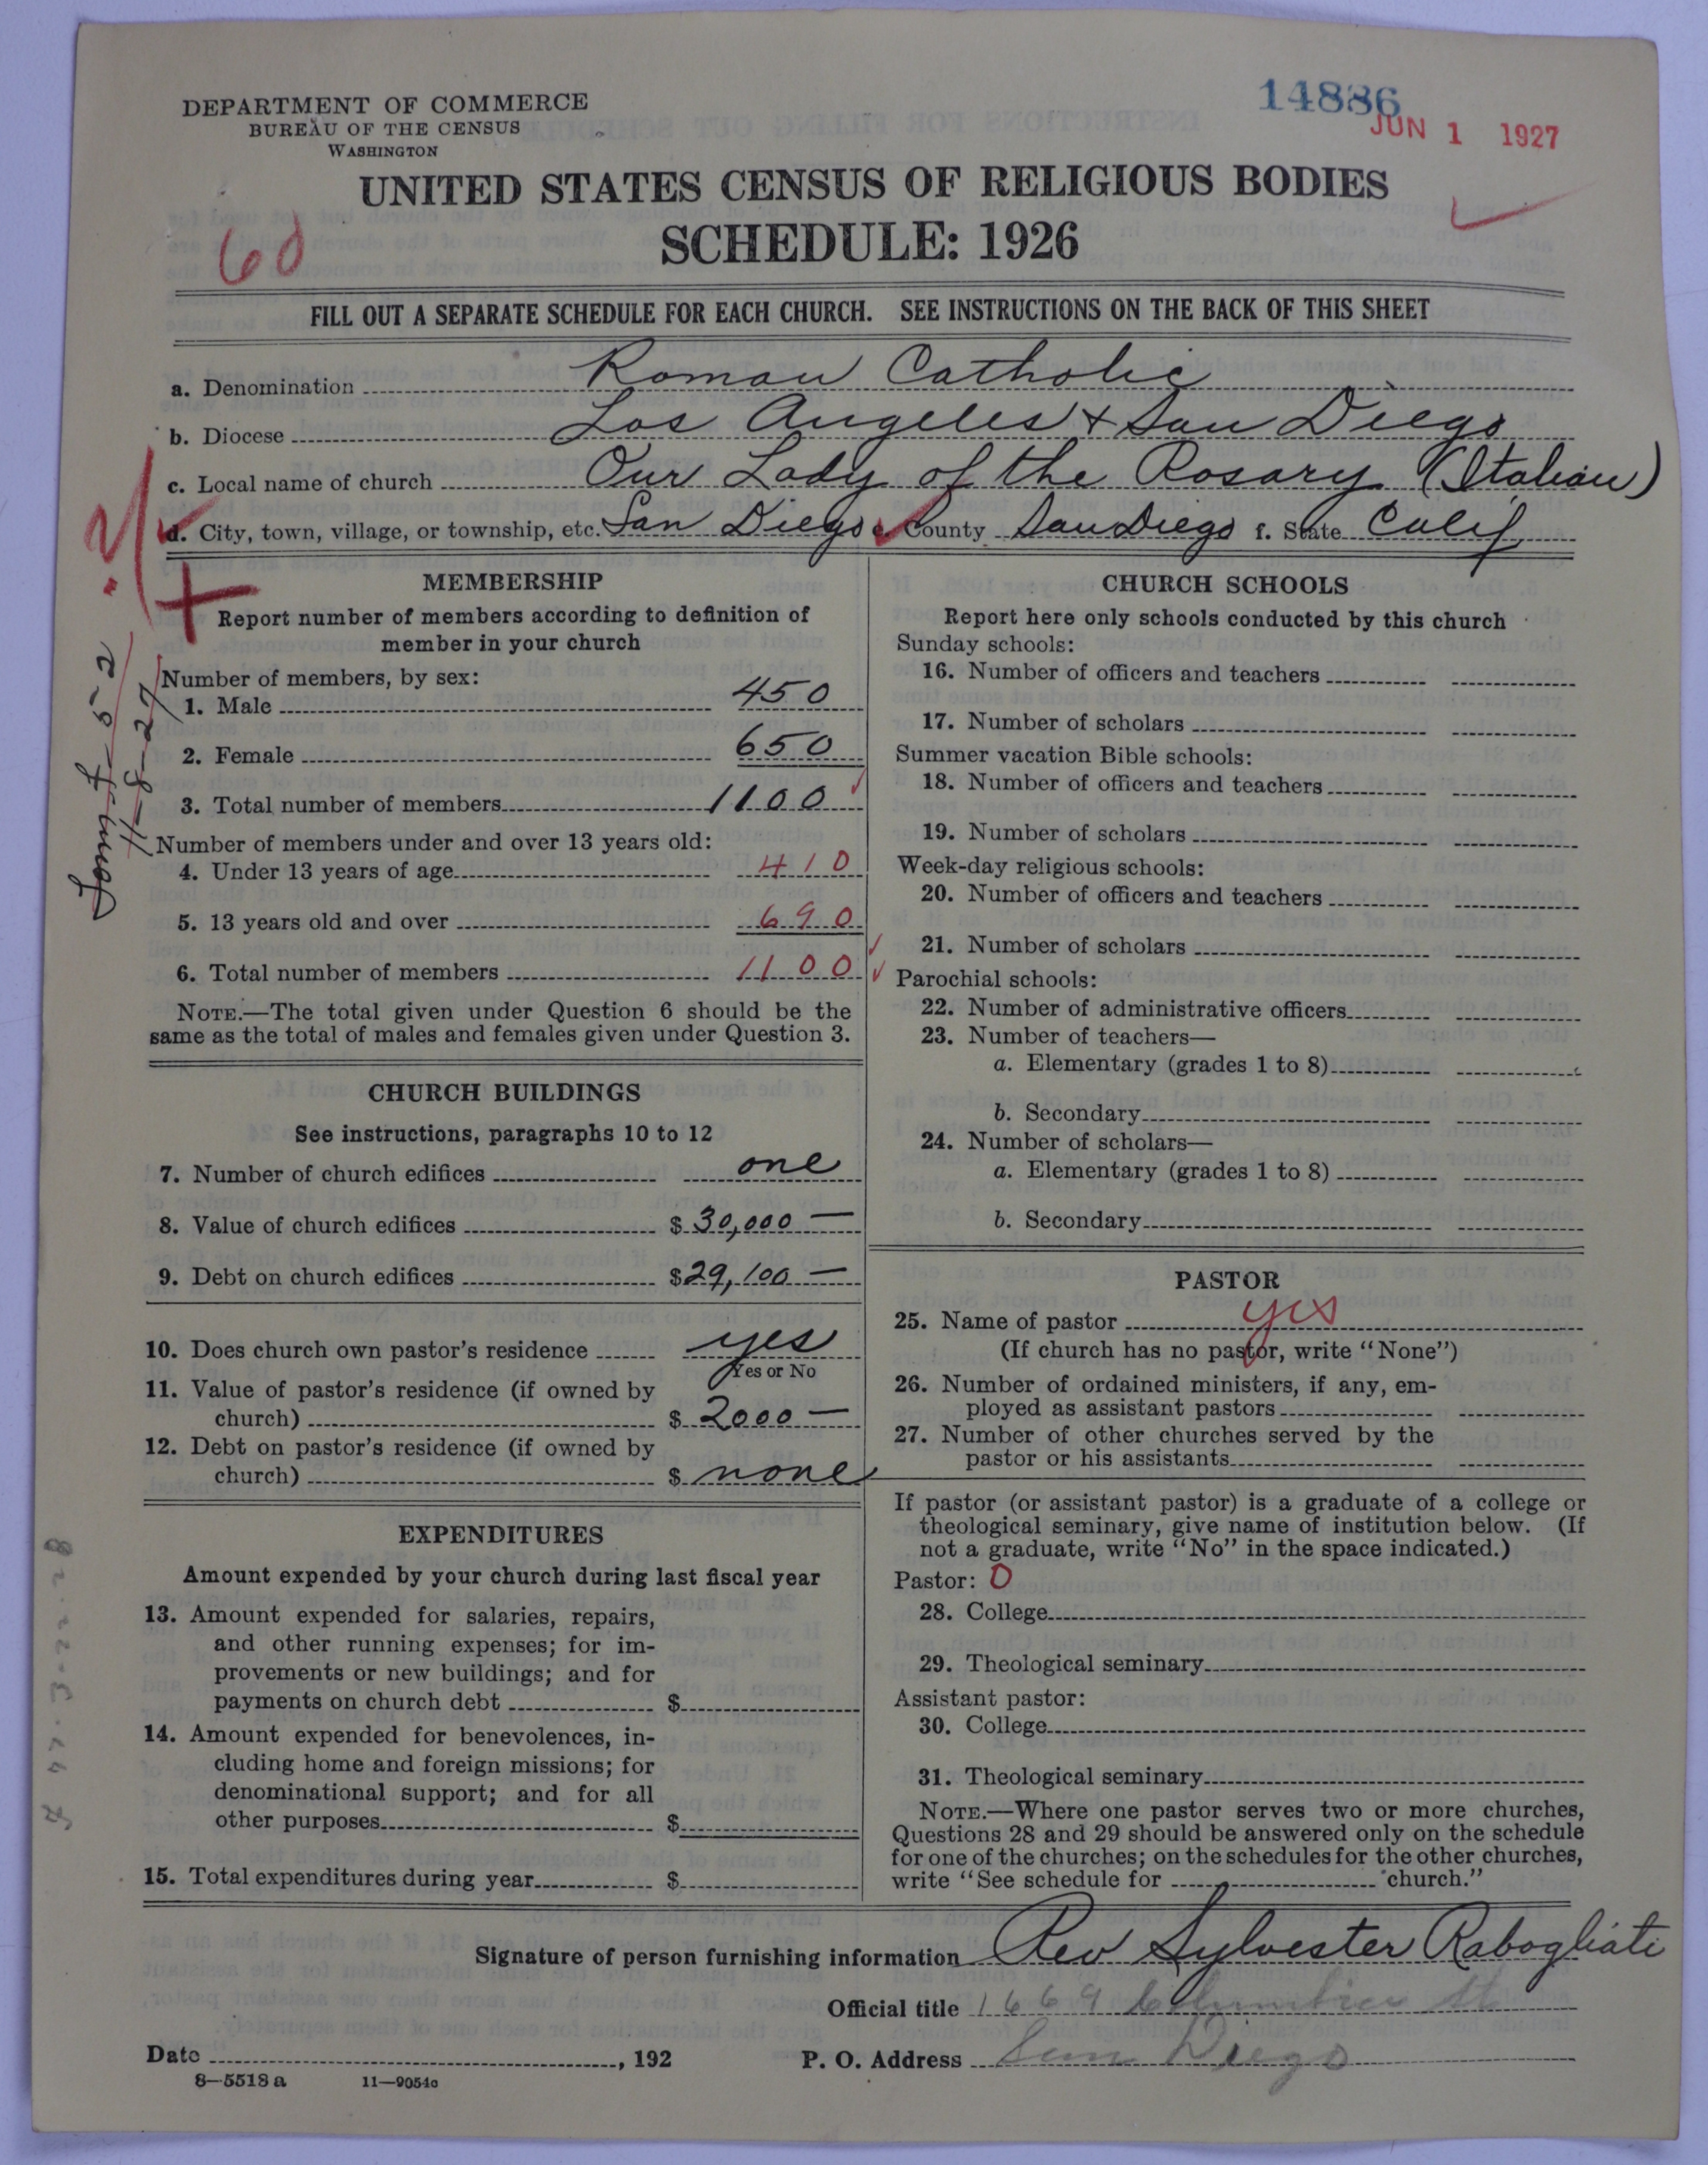 14886
JUN 1 1927
DEPARTMENT OF COMMERCE
BUREAU OF THE CENSUS
WASHINGTON
UNITED STATES CENSUS OF RELIGIOUS BODIES
SCHEDULE: 1926
60
FILL OUT A SEPARATE SCHEDULE FOR EACH CHURCH. SEE INSTRUCTIONS ON THE BACK OF THIS SHEET
a. Denomination Roman Catholic
b. Diocese Los Angeles & San Diego
c. Local name of church Our Lady of the Rosary (Italian)
d. City, town, village, or township, etc. San Diego e. County San Diego f. State Calif
MEMBERSHIP
Report number of members according to definition of
member in your church
Number of members, by sex:
1. Male 450
2. Female 650
3. Total number of members 1100
Number of members under and over 13 years old:
4. Under 13 years of age 410
5. 13 years old and over 690
6. Total number of members 1100
NOTE.—The total given under Question 6 should be the
same as the total of males and females given under Question 3.
CHURCH BUILDINGS
See instructions, paragraphs 10 to 12
7. Number of church edifices one
8. Value of church edifices $ 30,000 —
9. Debt on church edifices $ 29,100 —
10. Does church own pastor's residence yes
Yes or No
11. Value of pastor's residence (if owned by
church) $ 2000 —
12. Debt on pastor's residence (if owned by
church) $ none
EXPENDITURES
Amount expended by your church during last fiscal year
13. Amount expended for salaries, repairs,
and other running expenses; for im-
provements or new buildings; and for
payments on church debt $
14. Amount expended for benevolences, in-
cluding home and foreign missions; for
denominational support; and for all
other purposes $
15. Total expenditures during year $
CHURCH SCHOOLS
Report here only schools conducted by this church
Sunday schools:
16. Number of officers and teachers
17. Number of scholars
Summer vacation Bible schools:
18. Number of officers and teachers
19. Number of scholars
Week-day religious schools:
20. Number of officers and teachers
21. Number of scholars
Parochial schools:
22. Number of administrative officers
23. Number of teachers—
a. Elementary (grades 1 to 8)
b. Secondary
24. Number of scholars—
a. Elementary (grades 1 to 8)
b. Secondary
PASTOR
25. Name of pastor yes
(If church has no pastor, write "None")
26. Number of ordained ministers, if any, em-
ployed as assistant pastors
27. Number of other churches served by the
pastor or his assistants
If pastor (or assistant pastor) is a graduate of a college or
theological seminary, give name of institution below. (If
not a graduate, write "No" in the space indicated.)
Pastor: 0
28. College
29. Theological seminary
Assistant pastor:
30. College
31. Theological seminary
NOTE.—Where one pastor serves two or more churches,
Questions 28 and 29 should be answered only on the schedule
for one of the churches; on the schedules for the other churches,
write "See schedule for church."
Signature of person furnishing information Rev Sylvester Rabogliati
Official title 1669 Columbia St
Date , 192 P. O. Address San Diego
8—5518 a 11—9054c